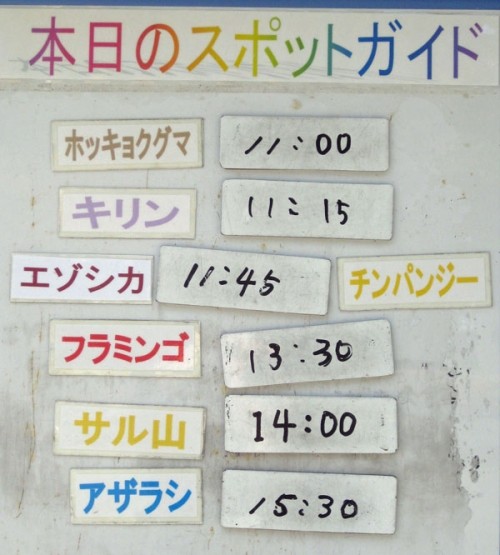 本日のスポットガイド
ホッキョクグマ 11:00
キリン 11:15
エゾシカ 11:45 チンパンジー
フラミンゴ 13:30
サル山 14:00
アザラシ 15:30